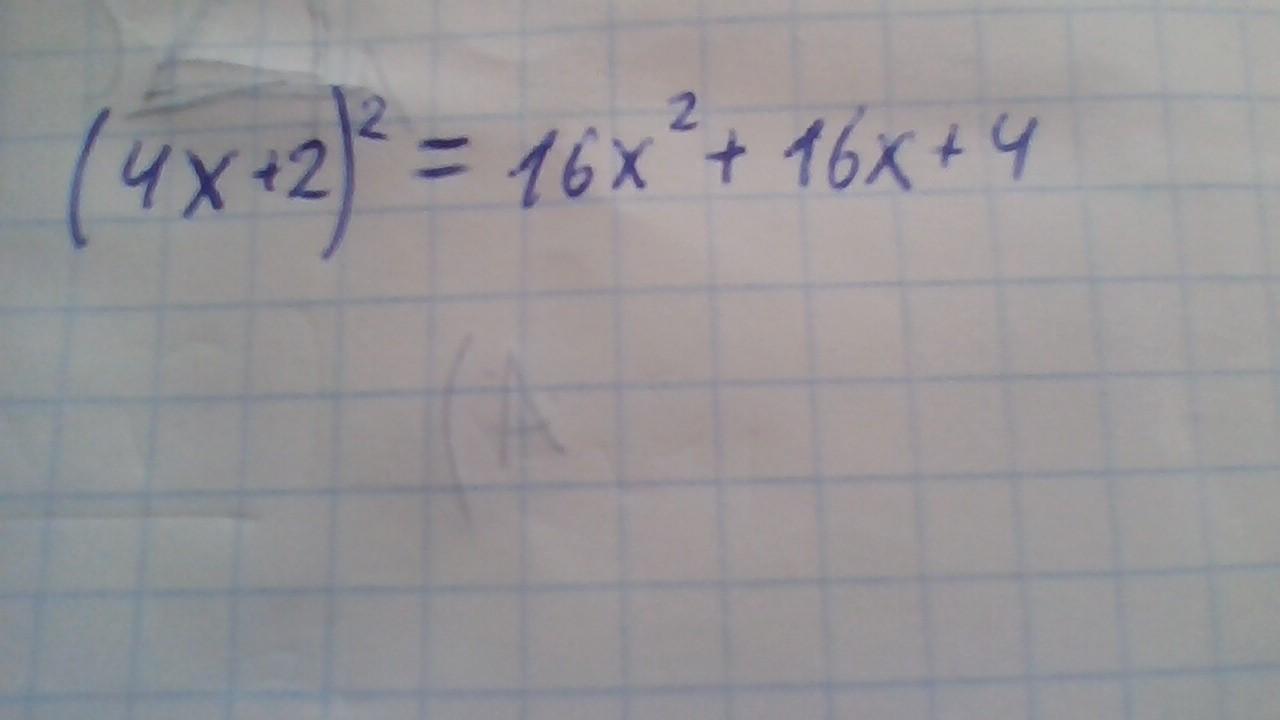 (4x+2)² = 16x² + 16x + 4
(A